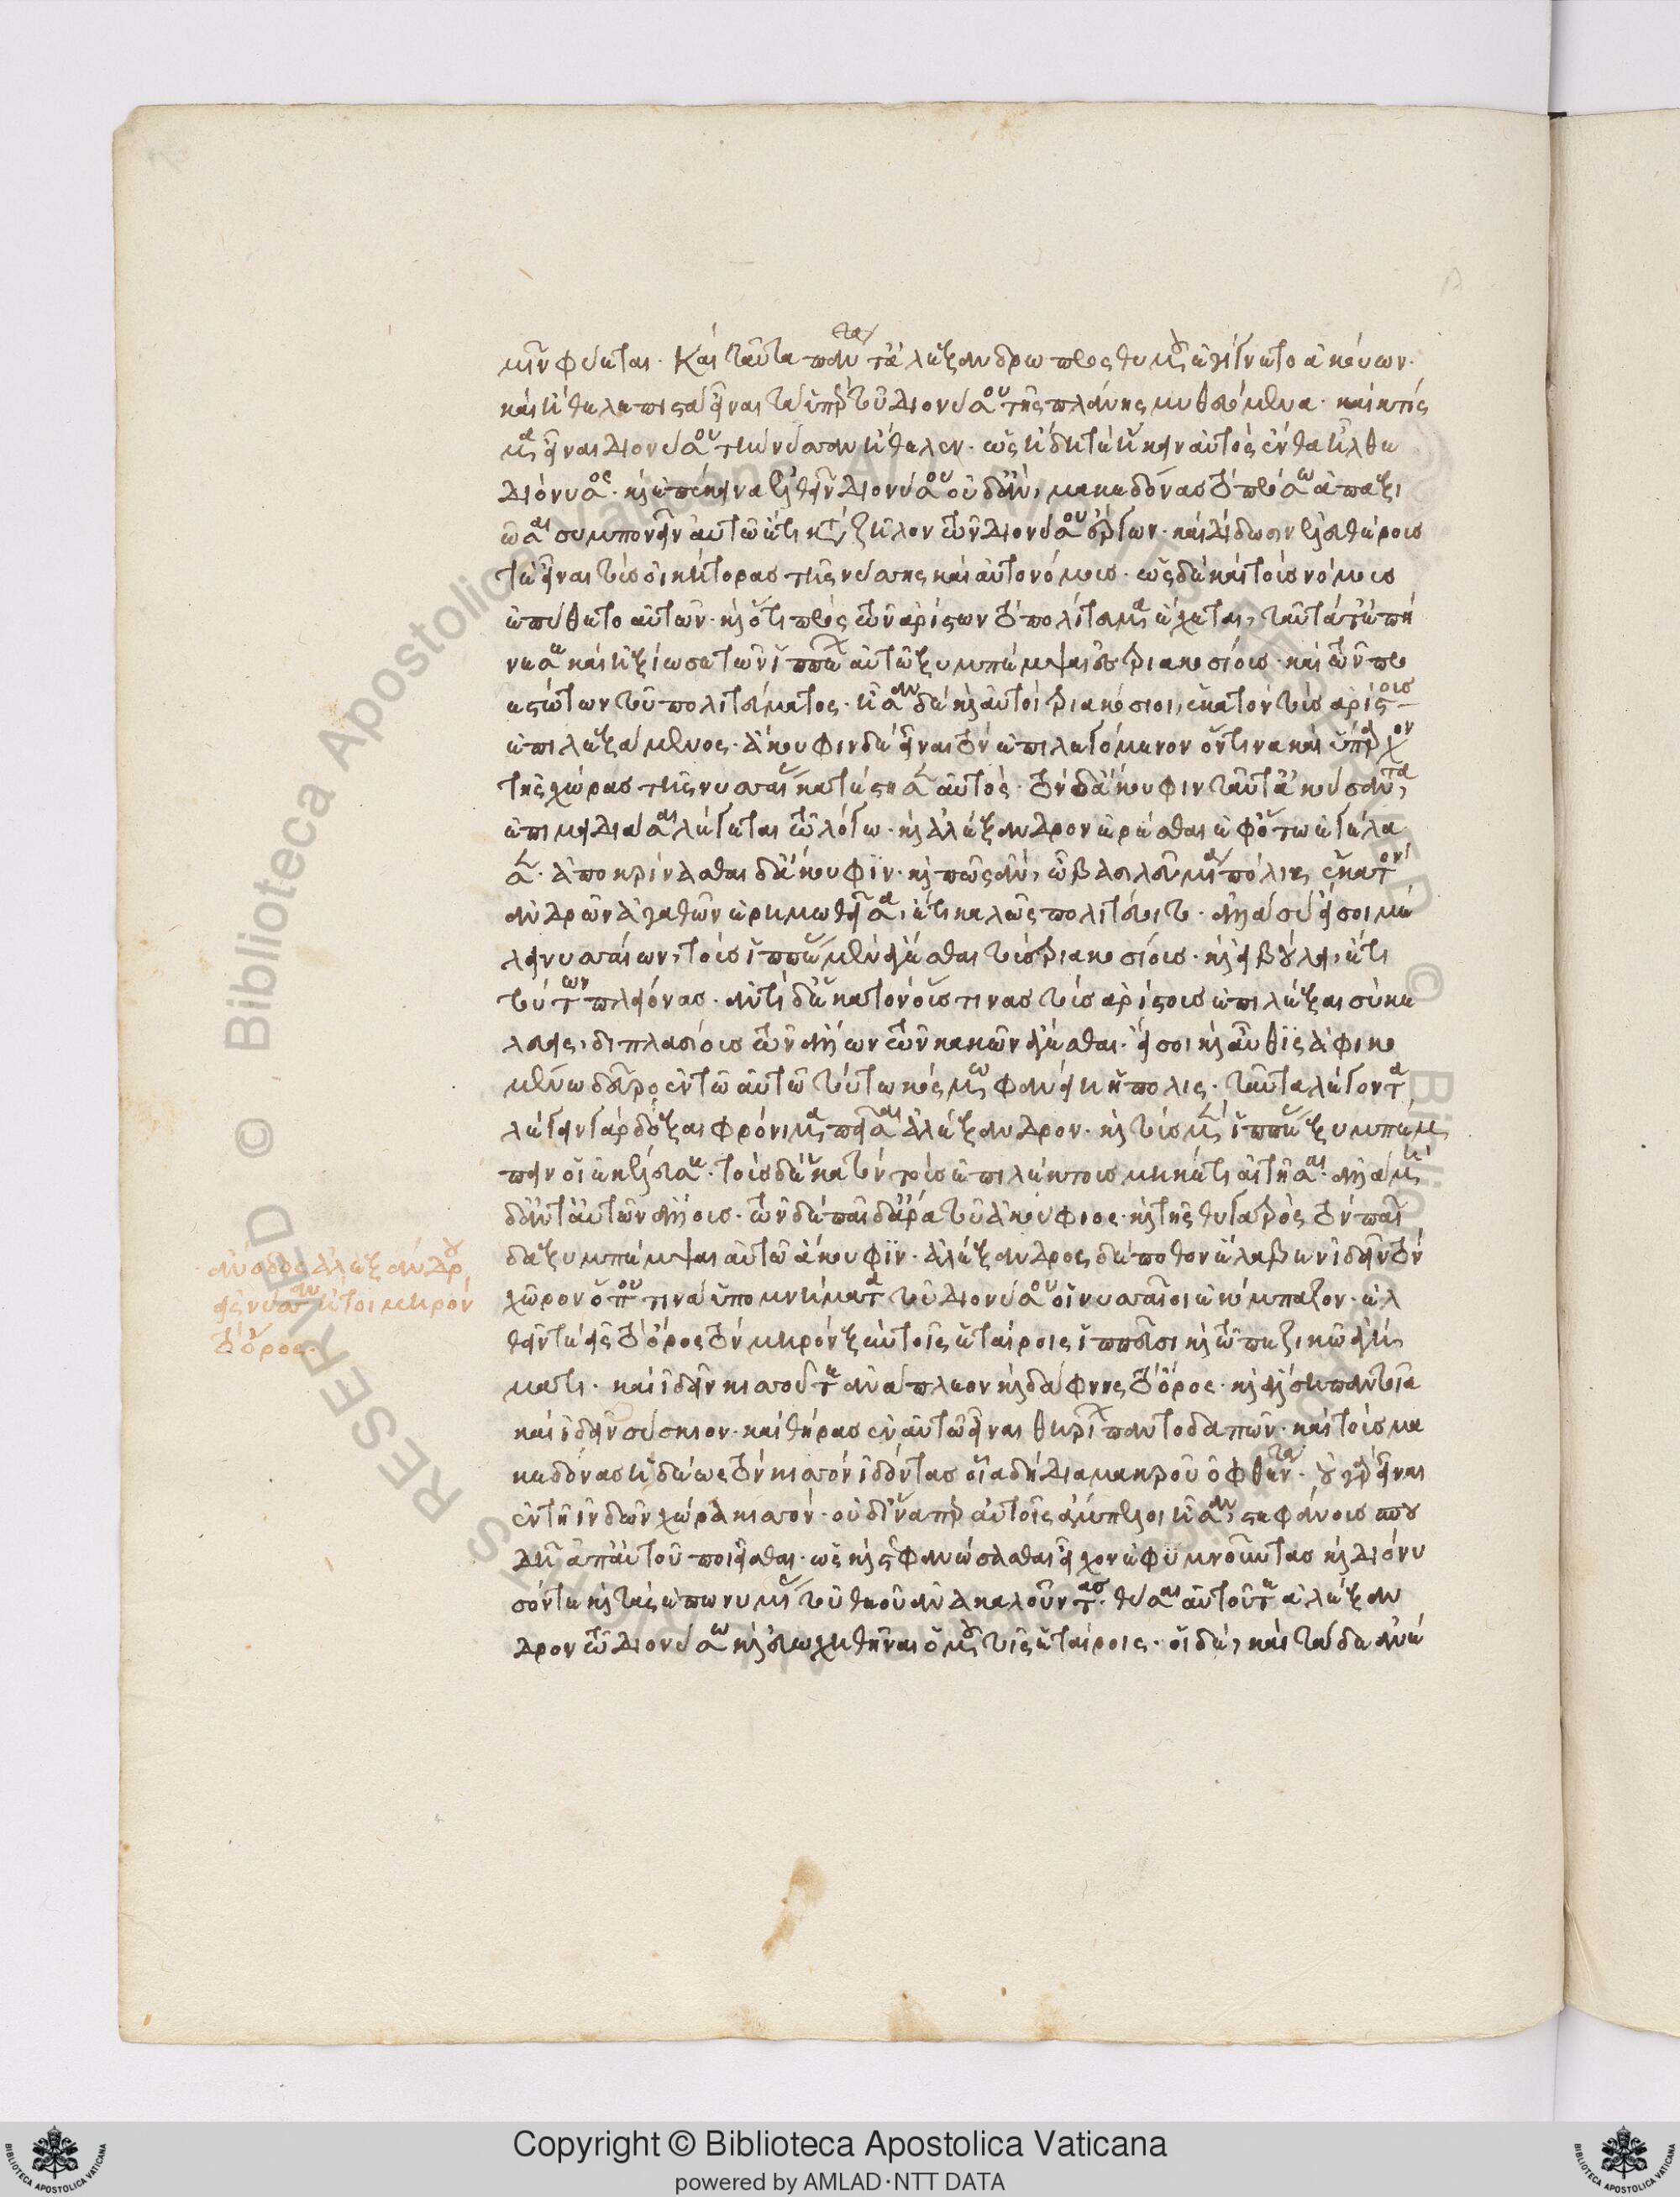 μῖν φύεται. Καὶ ταῦτα πάντα ἀλεξάνδρω πρὸς θυμοῦ ἐγίγνετο ἀκούων.
καὶ ἤθελε πιστὰ εἶναι τὰ ὑπὲρ τοῦ Διονύσου τῆς πλάνης μυθευόμενα. καὶ κτίσ
μα εἶναι Διονύσου τὴν νύσαν ἤθελεν. ὡς ἤδη τε ἥκειν αὐτὸς ἔνθα ἦλθε
Διόνυσος. καὶ ἐπέκεινα ἐλθεῖν Διονύσου οὐδ' ἂν μακεδόνας τὸ πρόσω ἀπαξι
ῶσαι συμπονεῖν αὐτῷ ἔτι κατὰ ζῆλον τῶν Διονύσου ἔργων. καὶ δίδωσιν ἐλευθέρους
τε εἶναι τοὺς οἰκήτορας τῆς νύσης καὶ αὐτονόμους. ὡς δὲ καὶ τοὺς νόμους
ἐπύθετο αὐτῶν. καὶ ὅτι πρὸς τῶν ἀρίστων τὸ πολίτευμα ἔχεται, ταῦτά τε ἐπή
νεσε καὶ ἠξίωσε τῶν ἱππέων αὐτῷ ξυμπέμψαι ἐς τριακοσίους. καὶ τῶν προ
εστώτων τοῦ πολιτεύματος. ἦσαν δὲ καὶ αὐτοὶ τριακόσιοι, ἑκατὸν τοὺς ἀρίστους
ἐπιλεξάμενος. Ἄκουφιν δὲ εἶναι τὸν ἐπιλεγόμενον ὅντινα καὶ ὕπαρχον
τῆς χώρας τῆς νυσαίας κατέστησεν αὐτὸς. τὸν δὲ ἄκουφιν ταῦτα ἀκούσαντα
ἐπιμειδιάσαι λέγεται τῷ λόγω. καὶ Ἀλέξανδρον ἐρέσθαι ἐφ' ὅτω ἐγέλα
σεν. Ἀποκρίνασθαι δὲ ἄκουφιν. καὶ πῶς ἂν, ὦ βασιλεῦ μία πόλις ἑκατὸν
ἀνδρῶν ἀγαθῶν ἐρημωθεῖσα, ἔτι καλῶς πολιτεύοιτο. ἀλλὰ σὺ εἴ σοι μέ
λει νυσαίων, τοὺς ἱππέας μὲν ἄγεσθαι τοὺς τριακοσίους. καὶ εἰ βούλει, ἔτι
τούτων πλείονας. ἀντὶ δὲ ἑκατὸν οὕστινας τοὺς ἀρίστους ἐπιλέξαι σὺ κε
λεύεις, διπλασίους τῶν ἄλλων τῶν κακῶν ἄγεσθαι. ἵνα σοι καὶ αὖθις ἀφικο
μένω δεῦρο ἐν τῷ αὐτῷ τούτω κόσμω φανείη ἡ πόλις. ταῦτα λέγοντα
λέγειν γὰρ δόξαι φρόνιμα πεῖσαι Ἀλέξανδρον. καὶ τοὺς μὲν ἱππέας ξυμπέμ
πειν οἱ ἐκέλευσε. τοὺς δὲ ἑκατὸν τοὺς ἐπιλέκτους μηκέτι αἰτῆσαι. ἀλλὰ μηδὲ
ἀντ' αὐτῶν ἄλλους. τὸν δὲ παῖδα ἄρα τοῦ Ἀκούφιος. καὶ τῆς θυγατρὸς τὸν παῖ
δα ξυμπέμψαι αὐτῷ ἄκουφιν. Ἀλέξανδρος δὲ πόθος ἔλαβεν ἰδεῖν τὸν
χῶρον ὅπου τινὰ ὑπομνήματα τοῦ Διονύσου οἱ νυσαῖοι ἐκόμπαζον. ἐλ
θεῖν τε ἐς τὸ ὄρος τὸν μηρὸν ξὺν τοῖς ἑταίροις ἱππεῦσι καὶ τῷ πεζικῷ ἀγή
ματι. καὶ ἰδεῖν κισσοῦ τε ἀνάπλεον καὶ δάφνης τὸ ὄρος. καὶ ἄλση παντοῖα
καὶ ἰδεῖν σύσκιον. καὶ θήρας ἐν αὐτῷ εἶναι θηρίων παντοδαπῶν. καὶ τοὺς μα
κεδόνας ἡδέως τὸν κισσὸν ἰδόντας οἷα δὴ διὰ μακροῦ ὀφθέντα. οὐ γὰρ εἶναι
ἐν τῇ ἰνδῶν χώρα κισσόν. οὐδὲ ἵνα περ αὐτοῖς ἄμπελοι ἦσαν, στεφάνους σπου
δῇ ἀπ' αὐτοῦ ποιεῖσθαι. ὡς καὶ στεφανώσασθαι εἶχον ἐφυμνοῦντας καὶ Διόνυ
σόν τε καὶ τὰς ἐπωνυμίας τοῦ θεοῦ ἀνακαλοῦντας. θῦσαι αὐτοῦ τε ἀλέξαν
δρον τῷ Διονύσω καὶ εὐωχηθῆναι ὁμοῦ τοῖς ἑταίροις. οἱ δὲ, καὶ τάδε ἀνέ
ἄνοδος Ἀλεξάνδρου
εἰς νύσαν ἤτοι μηρὸν
τὸ ὄρος.
Copyright © Biblioteca Apostolica Vaticana
powered by AMLAD·NTT DATA